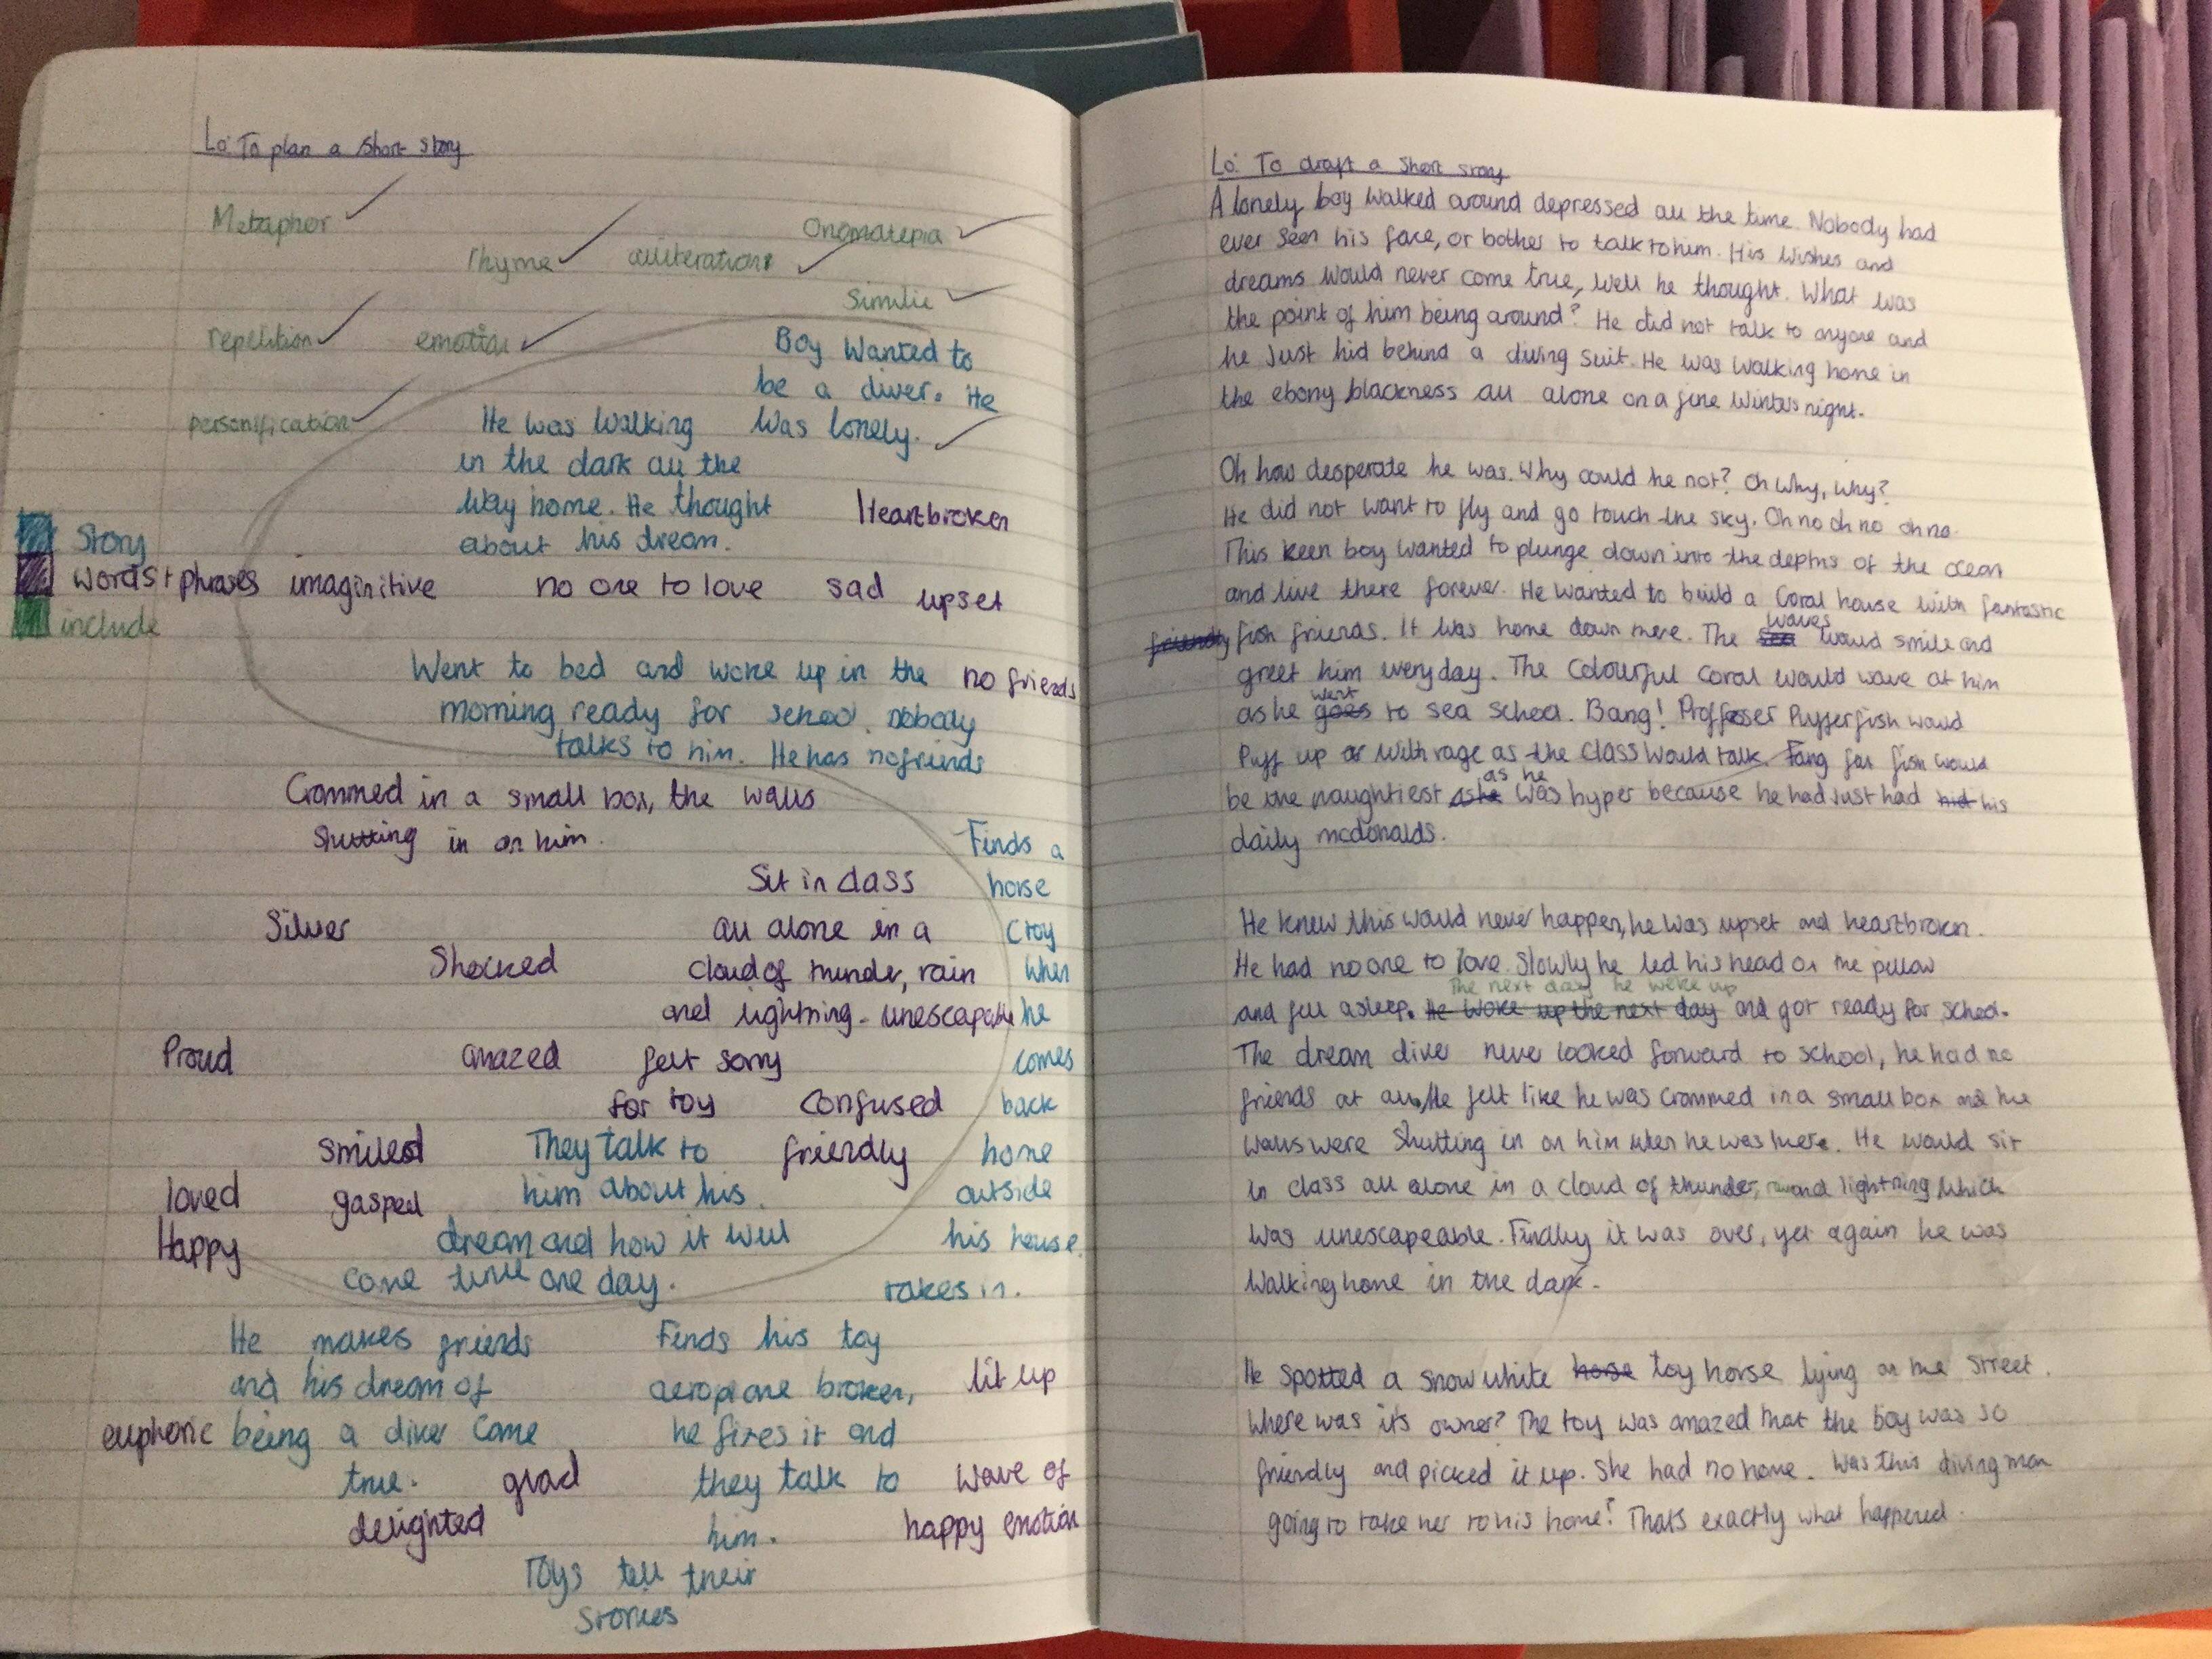 Lo: To plan a short story
Metaphor
rhyme
alliteration
Onomatepia
Similie
repetition
emotion
personification
Boy Wanted to
be a diver. He
Was lonely.
He was walking
in the dark all the
way home. He thought
about his dream.
Heartbroken
Story
words + phrases
include
imaginitive
no one to love
sad
upset
Went to bed and woke up in the
morning ready for school. Nobody
talks to him. He has no friends
no friends
Crammed in a small box, the walls
shutting in on him.
Sit in class
all alone in a
cloud of thunder, rain
and lightning - unescapable
Finds a
horse
(toy
when
he
comes
back
home
outside
his house.
takes in.
Silver
Shocked
Proud
amazed
felt sorry
for toy
Confused
smiled
friendly
loved
gasped
Happy
They talk to
him about his
dream and how it will
come true one day.
Finds his toy
aeroplane broken,
he fixes it and
they talk to
him.
lit up
wave of
happy emotion
He makes friends
and his dream of
being a diver come
true.
euphoric
glad
delighted
Toys tell their
stories
Lo: To draft a short story
A lonely boy walked around depressed all the time. Nobody had
ever seen his face, or bother to talk to him. His wishes and
dreams would never come true, well he thought. What was
the point of him being around? He did not talk to anyone and
he just hid behind a diving suit. He was walking home in
the ebony blackness all alone on a fine winters night.
Oh how desperate he was. Why could he not? Oh why, why?
He did not want to fly and go touch the sky. Oh no oh no oh no.
This keen boy wanted to plunge down into the depths of the ocean
and live there forever. He wanted to build a coral house with fantastic
friendly fish friends. It was home down there. The sea waves would smile and
greet him everyday. The colourful coral would wave at him
as he goes went to sea school. Bang! Proffeser Pufferfish would
Puff up with rage as the class would talk. Fang far fish would
be the naughtiest as he as he was hyper because he had just had hid his
daily mcdonalds.
He knew this would never happen, he was upset and heartbroken.
He had no one to love. Slowly he led his head on the pillow
The next day he woke up
and fell asleep. He woke up the next day and got ready for school.
The dream diver never looked forward to school, he had no
friends at all. He felt like he was crammed in a small box and the
walls were shutting in on him when he was there. He would sit
in class all alone in a cloud of thunder, and lightning which
was unescapeable. Finally it was over, yet again he was
walking home in the dark.
He spotted a snow white horse toy horse lying on the street.
Where was its owner? The toy was amazed that the boy was so
friendly and picked it up. She had no home. Was this diving man
going to take her to his home? Thats exactly what happened.